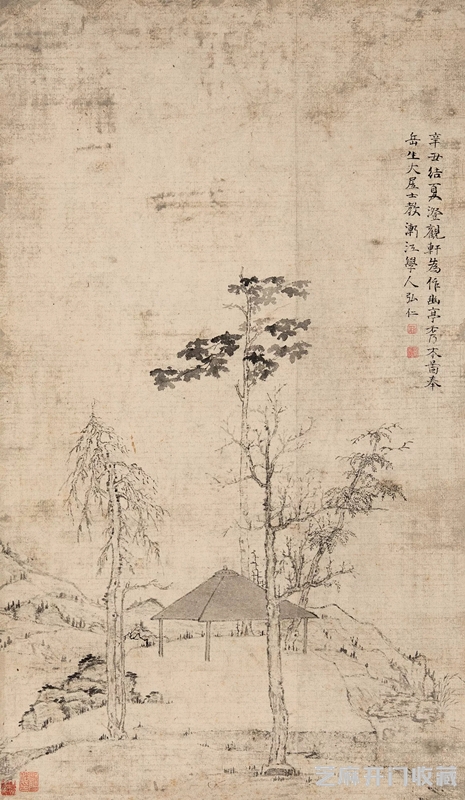 辛丑結夏澄觀軒為作幽亭秀木啚奉
岳生大居士教漸江學人弘仁
艺麻开门收藏